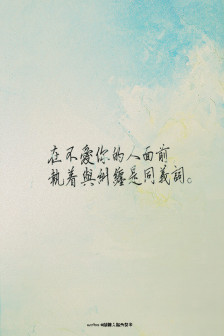 在不愛你的人面前
執着與糾纏是同義詞。